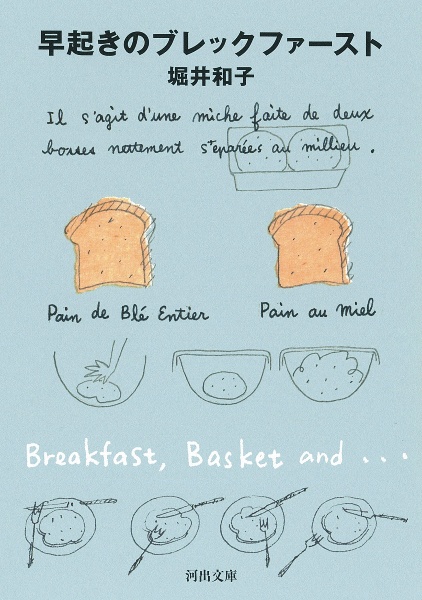 早起きのブレックファースト
堀井和子
Il s'agit d'une miche faite de deux
bosses nottement séparées au millieu.
Pain de Blé Entier
Pain au Miel
Breakfast, Basket and ...
河出文庫